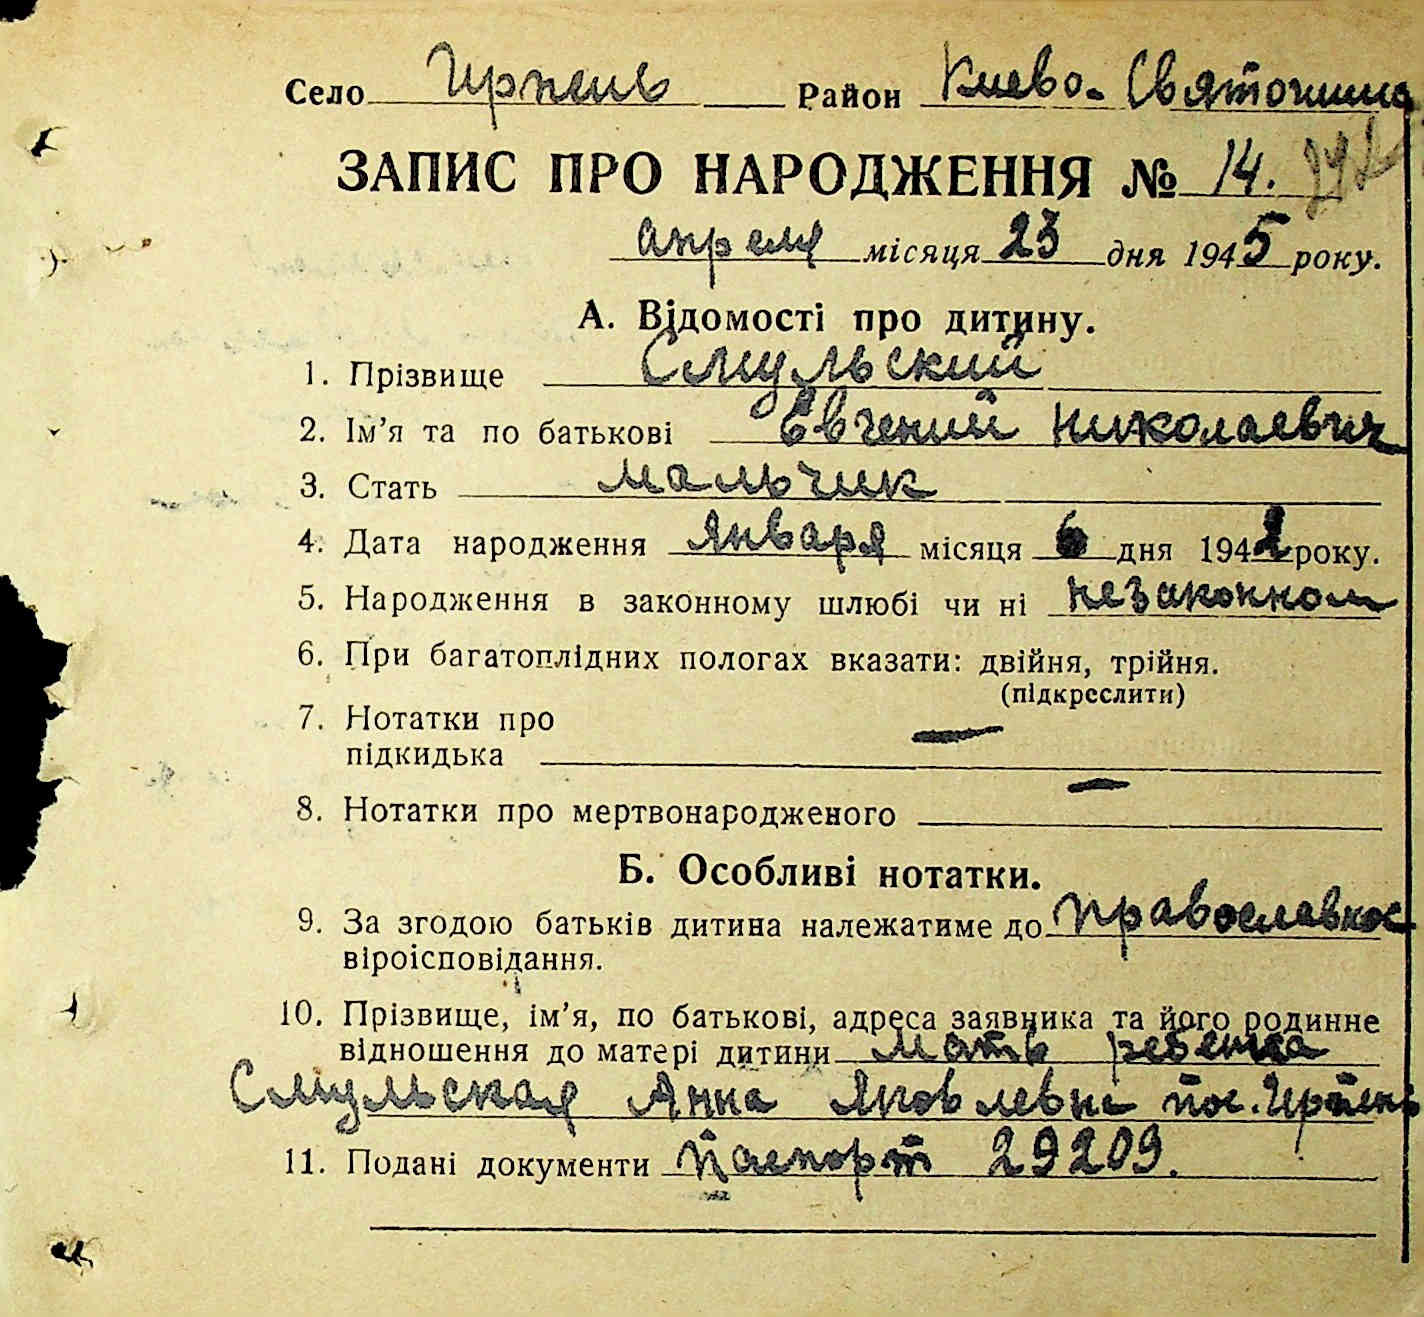 Село Ирпень Район Киево-Святошино
ЗАПИС ПРО НАРОДЖЕННЯ № 14.
апреля місяця 23 дня 1945 року.
А. Відомості про дитину.
1. Прізвище Смульский
2. Ім'я та по батькові Евгений Николаевич
3. Стать мальчик
4. Дата народження января місяця 6 дня 1942 року.
5. Народження в законному шлюбі чи ні незаконном
6. При багатоплідних пологах вказати: двійня, трійня.
(підкреслити)
7. Нотатки про
підкидька —
8. Нотатки про мертвонародженого —
Б. Особливі нотатки.
9. За згодою батьків дитина належатиме до православное
віроісповідання.
10. Прізвище, ім'я, по батькові, адреса заявника та його родинне
відношення до матері дитини мать ребенка
Смульская Анна Яковлевна пос. Ирпень
11. Подані документи паспорт 29209.